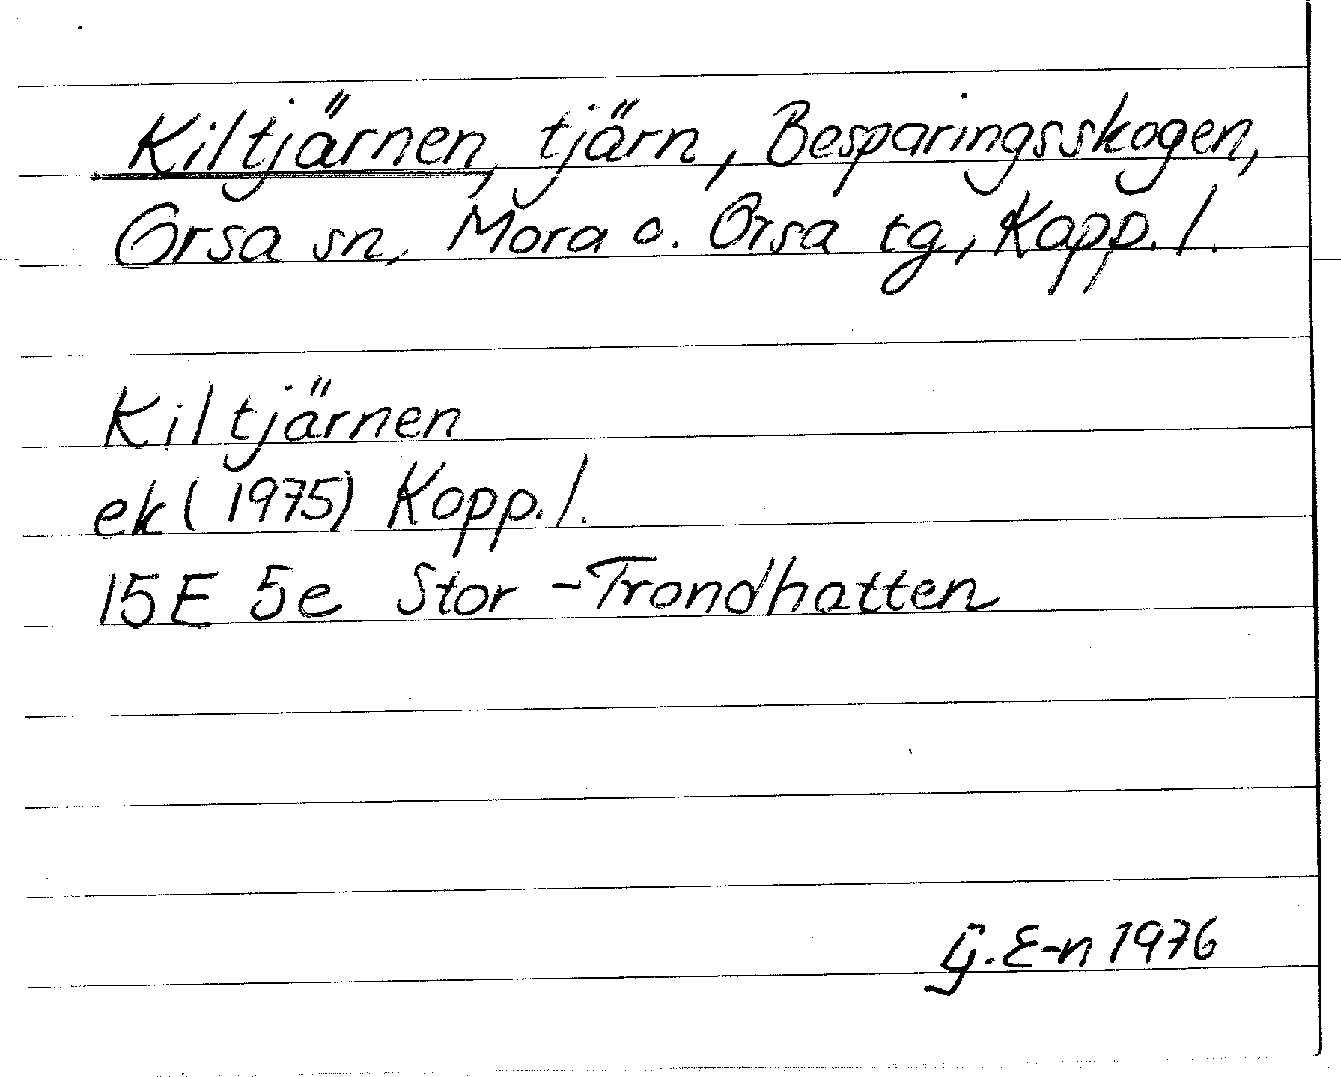 Kiltjärnen, tjärn, Besparingsskogen,
Orsa sn, Mora o. Orsa tg, Kopp. l.
Kiltjärnen
ek (1975) Kopp. l.
15E 5e Stor-Trondhatten
G. E-n 1976